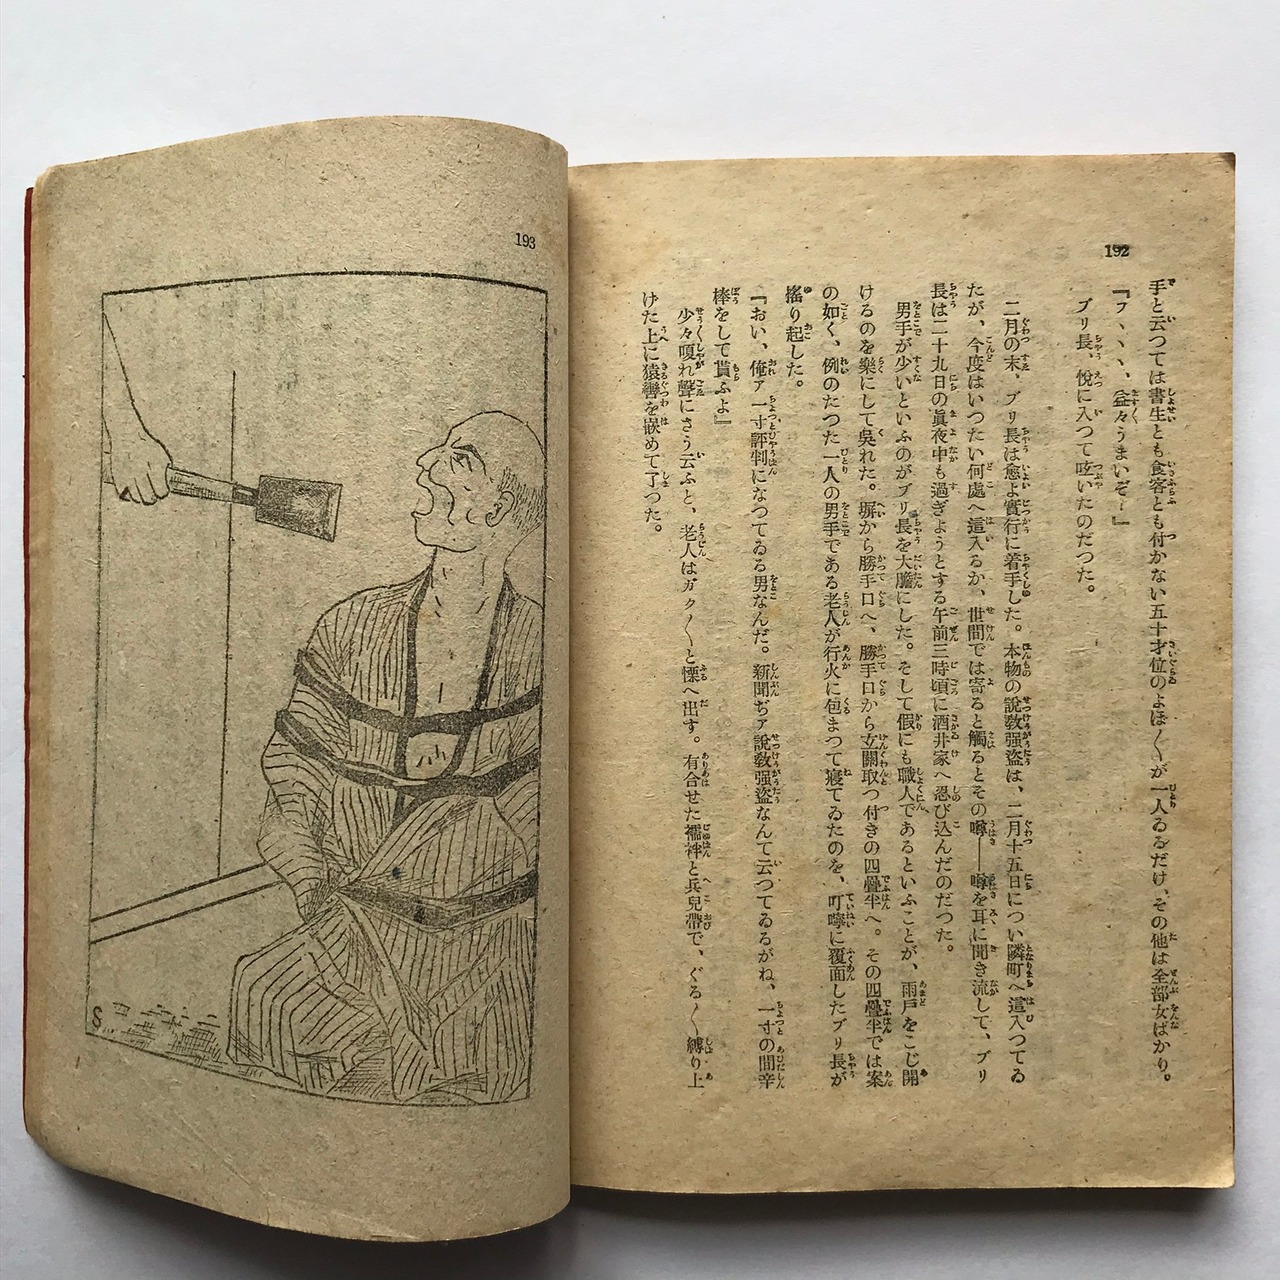 192
手と云つては書生とも食客とも付かない五十才位のよぼ〱が一人ゐるだけ、その他は全部女ばかり。
『フヽヽヽ、益々うまいぞ！』
ブリ長、悅に入つて呟いたのだつた。
二月の末、ブリ長は愈よ實行に着手した。本物の說敎强盜は、二月十五日につい隣町へ這入つてゐ
たが、今度はいつたい何處へ這入るか、世間では寄ると觸るとその噂――噂を耳に聞き流して、ブリ
長は二十九日の眞夜中も過ぎようとする午前三時頃に酒井家へ忍び込んだのだつた。
男手が少いといふのがブリ長を大膽にした。そして假にも職人であるといふことが、雨戶をこじ開
けるのを樂にして吳れた。塀から勝手口へ、勝手口から玄關取つ付きの四疊半へ。その四疊半では案
の如く、例のたつた一人の男手である老人が行火に包まつて寢てゐたのを、叮嚀に覆面したブリ長が
搖り起した。
『おい、俺ァ一寸評判になつてゐる男なんだ。新聞ぢァ說敎强盜なんて云つてゐるがね、一寸の間辛
棒をして貰ふよ』
少々嗄れ聲にさう云ふと、老人はガク〱と慄へ出す。有合せた襦袢と兵兒帶で、ぐる〱縛り上
けた上に猿轡を嵌めて了つた。
193
S